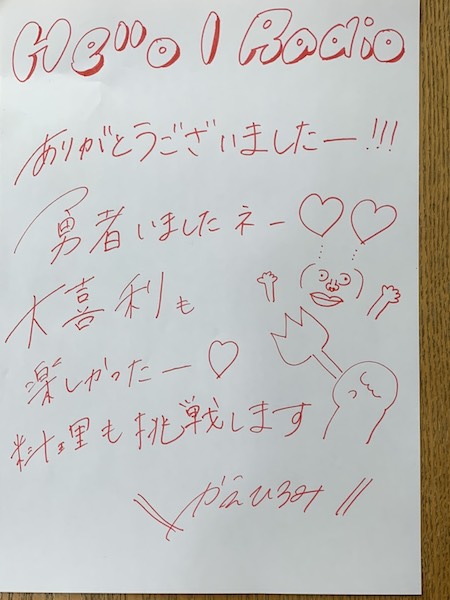 Hello! Radio
ありがとうございましたー!!!
勇者いましたネー♡♡
大喜利も
楽しかったー♡
料理も挑戦します
\\ かえひろみ //